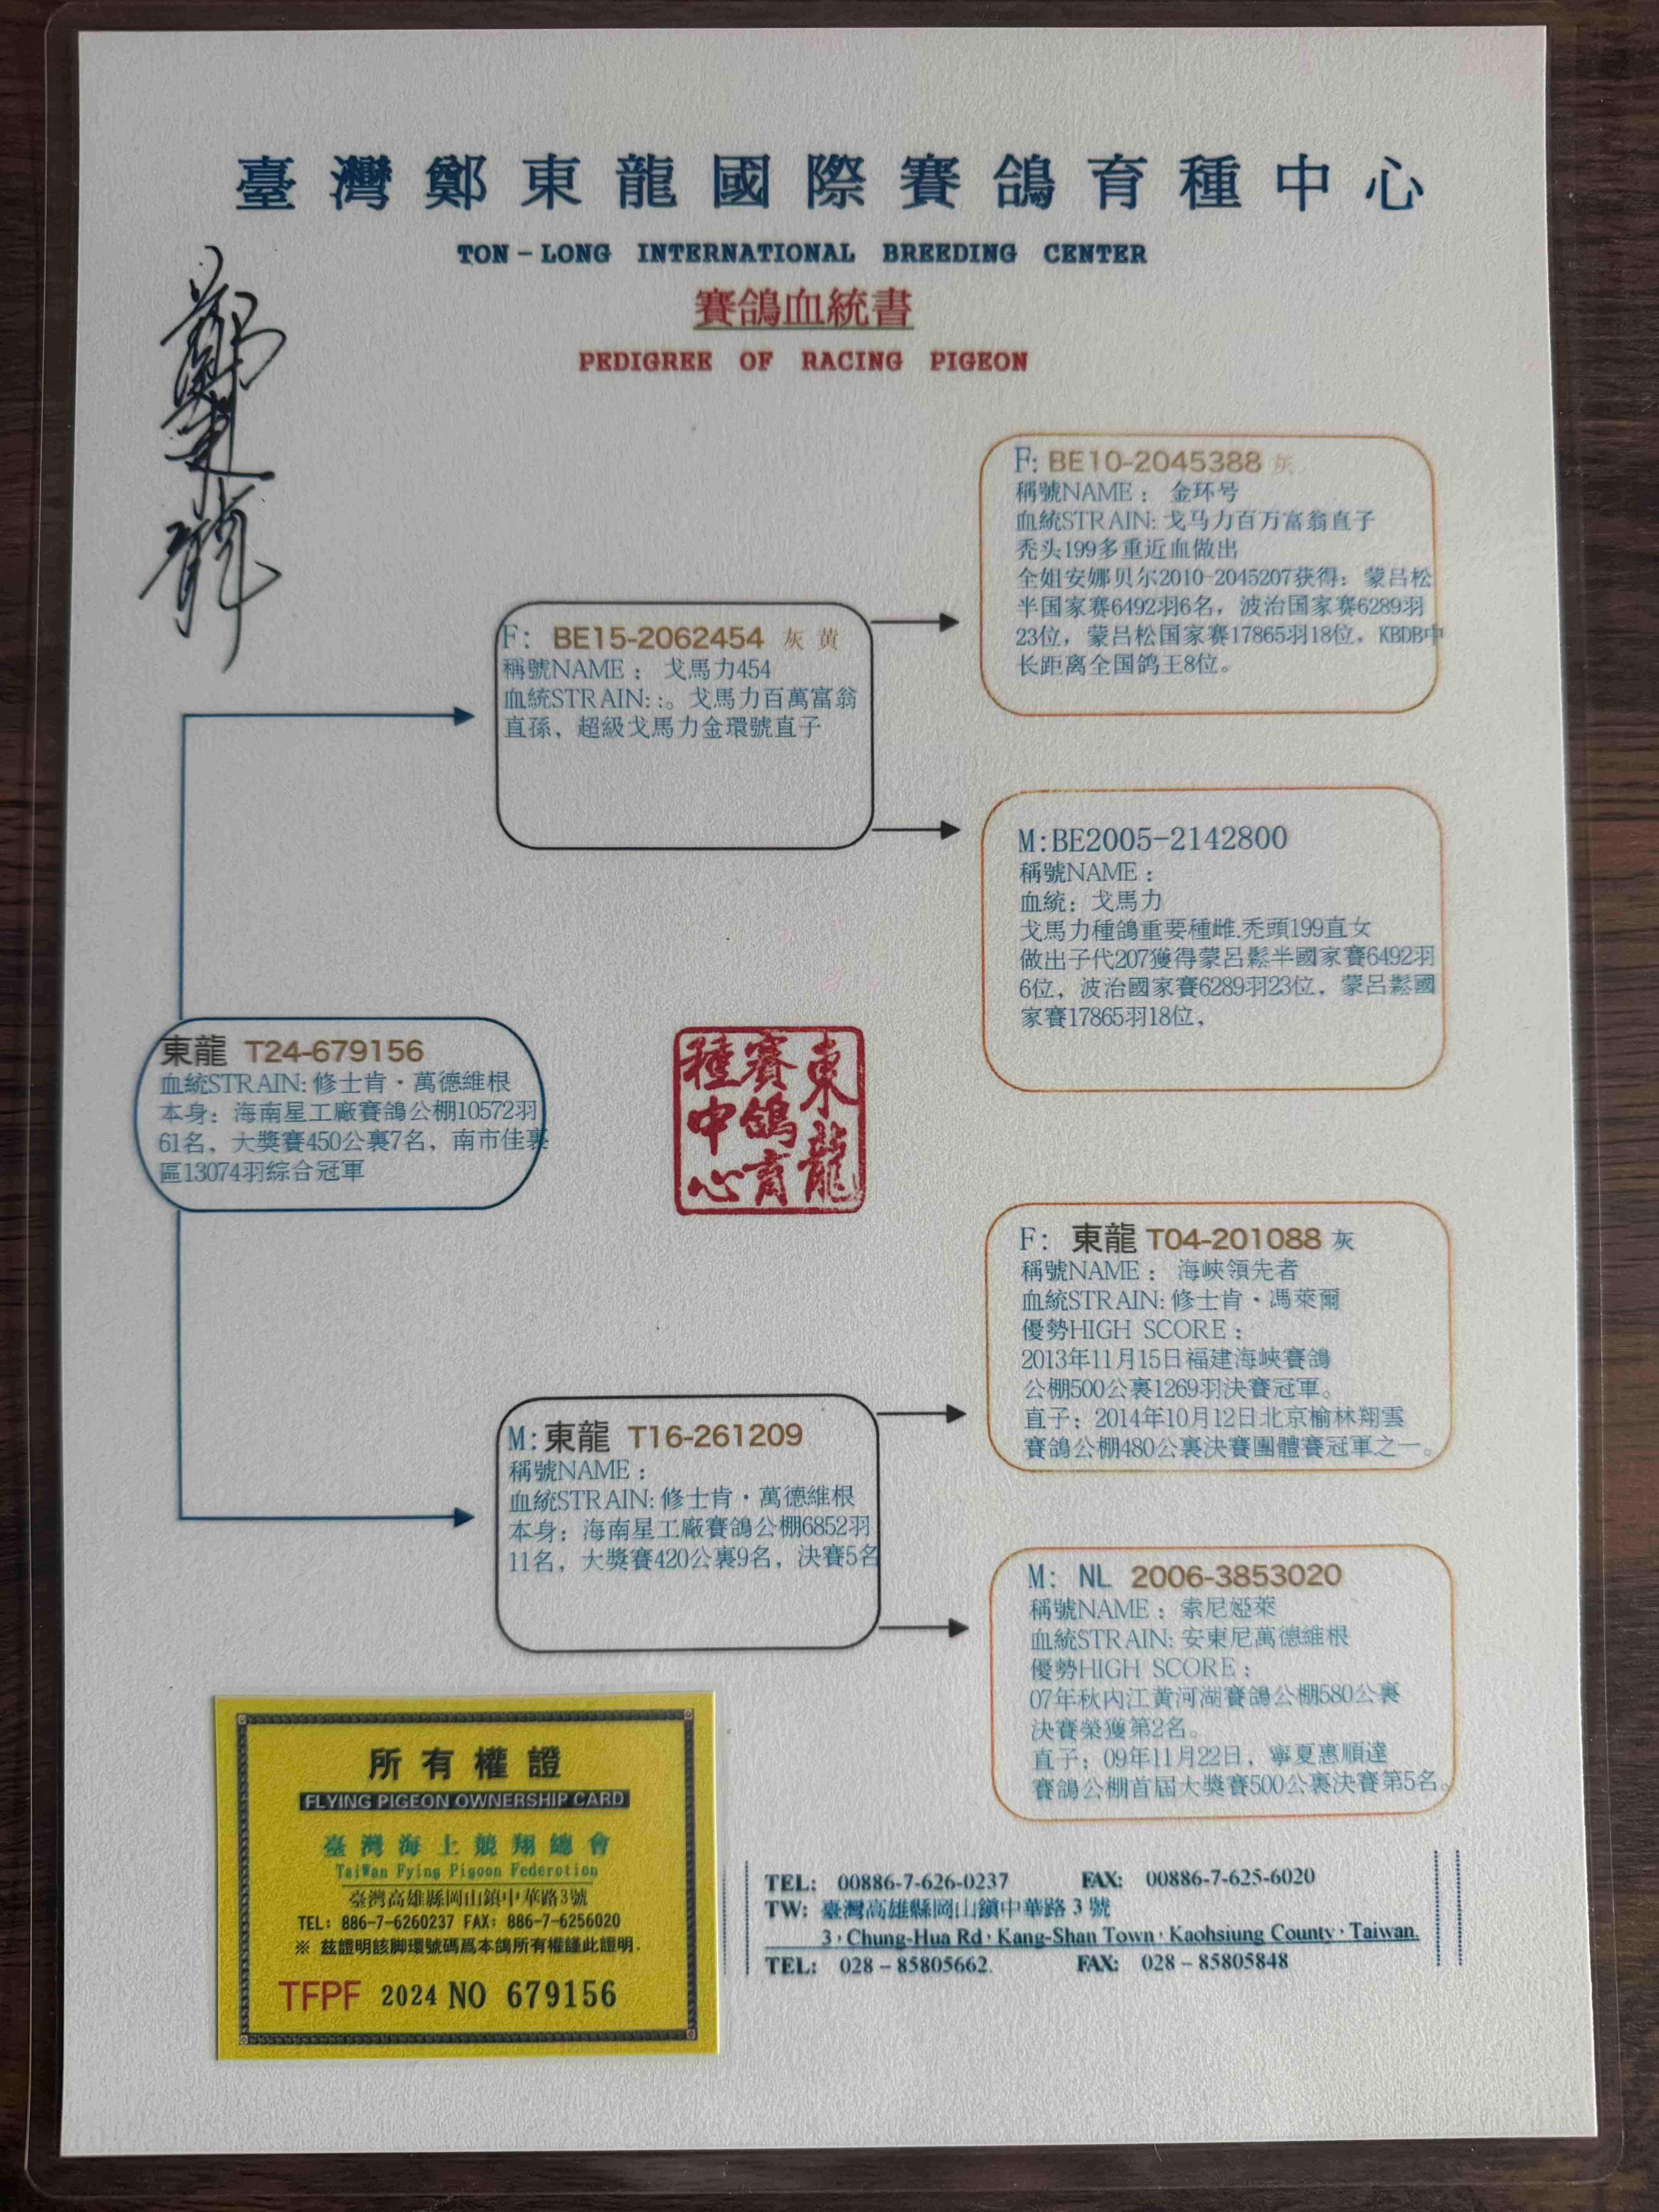 臺灣鄭東龍國際賽鴿育種中心
TON-LONG INTERNATIONAL BREEDING CENTER
賽鴿血統書
PEDIGREE OF RACING PIGEON
鄭東龍
F: BE10-2045388 灰
稱號NAME： 金环号
血統STRAIN: 戈马力百万富翁直子
秃头199多重近血做出
全姐安娜贝尔2010-2045207获得：蒙吕松
半国家赛6492羽6名，波治国家赛6289羽
23位，蒙吕松国家赛17865羽18位，KBDB中
长距离全国鸽王8位。
F: BE15-2062454 灰 黄
稱號NAME： 戈馬力454
血統STRAIN: :。戈馬力百萬富翁
直孫，超級戈馬力金環號直子
M:BE2005-2142800
稱號NAME：
血統：戈馬力
戈馬力種鴿重要種雌.禿頭199直女
做出子代207獲得蒙呂鬆半國家賽6492羽
6位，波治國家賽6289羽23位，蒙呂鬆國
家賽17865羽18位，
東龍 T24-679156
血統STRAIN: 修士肯·萬德維根
本身：海南星工廠賽鴿公棚10572羽
61名，大獎賽450公裏7名，南市佳裏
區13074羽綜合冠軍
東龍
賽鴿育
種中心
F: 東龍 T04-201088 灰
稱號NAME： 海峽領先者
血統STRAIN: 修士肯·馮萊爾
優勢HIGH SCORE：
2013年11月15日福建海峽賽鴿
公棚500公裏1269羽決賽冠軍。
直子：2014年10月12日北京榆林翔雲
賽鴿公棚480公裏決賽團體賽冠軍之一。
M: 東龍 T16-261209
稱號NAME：
血統STRAIN: 修士肯·萬德維根
本身：海南星工廠賽鴿公棚6852羽
11名，大獎賽420公裏9名，決賽5名
M: NL 2006-3853020
稱號NAME：索尼婭萊
血統STRAIN: 安東尼萬德維根
優勢HIGH SCORE：
07年秋内江黄河湖賽鴿公棚580公裏
決賽榮獲第2名。
直子：09年11月22日，寧夏惠順達
賽鴿公棚首屆大獎賽500公裏決賽第5名。
所有權證
FLYING PIGEON OWNERSHIP CARD
臺灣海上競翔總會
TaiWan Fying Pigoon Federotion
臺灣高雄縣岡山鎮中華路3號
TEL: 886-7-6260237 FAX: 886-7-6256020
※ 茲證明該脚環號碼爲本鴿所有權謹此證明.
TFPF 2024 NO 679156
TEL: 00886-7-626-0237 FAX: 00886-7-625-6020
TW: 臺灣高雄縣岡山鎮中華路 3 號
3，Chung-Hua Rd，Kang-Shan Town，Kaohsiung County，Taiwan.
TEL: 028－85805662. FAX: 028－85805848